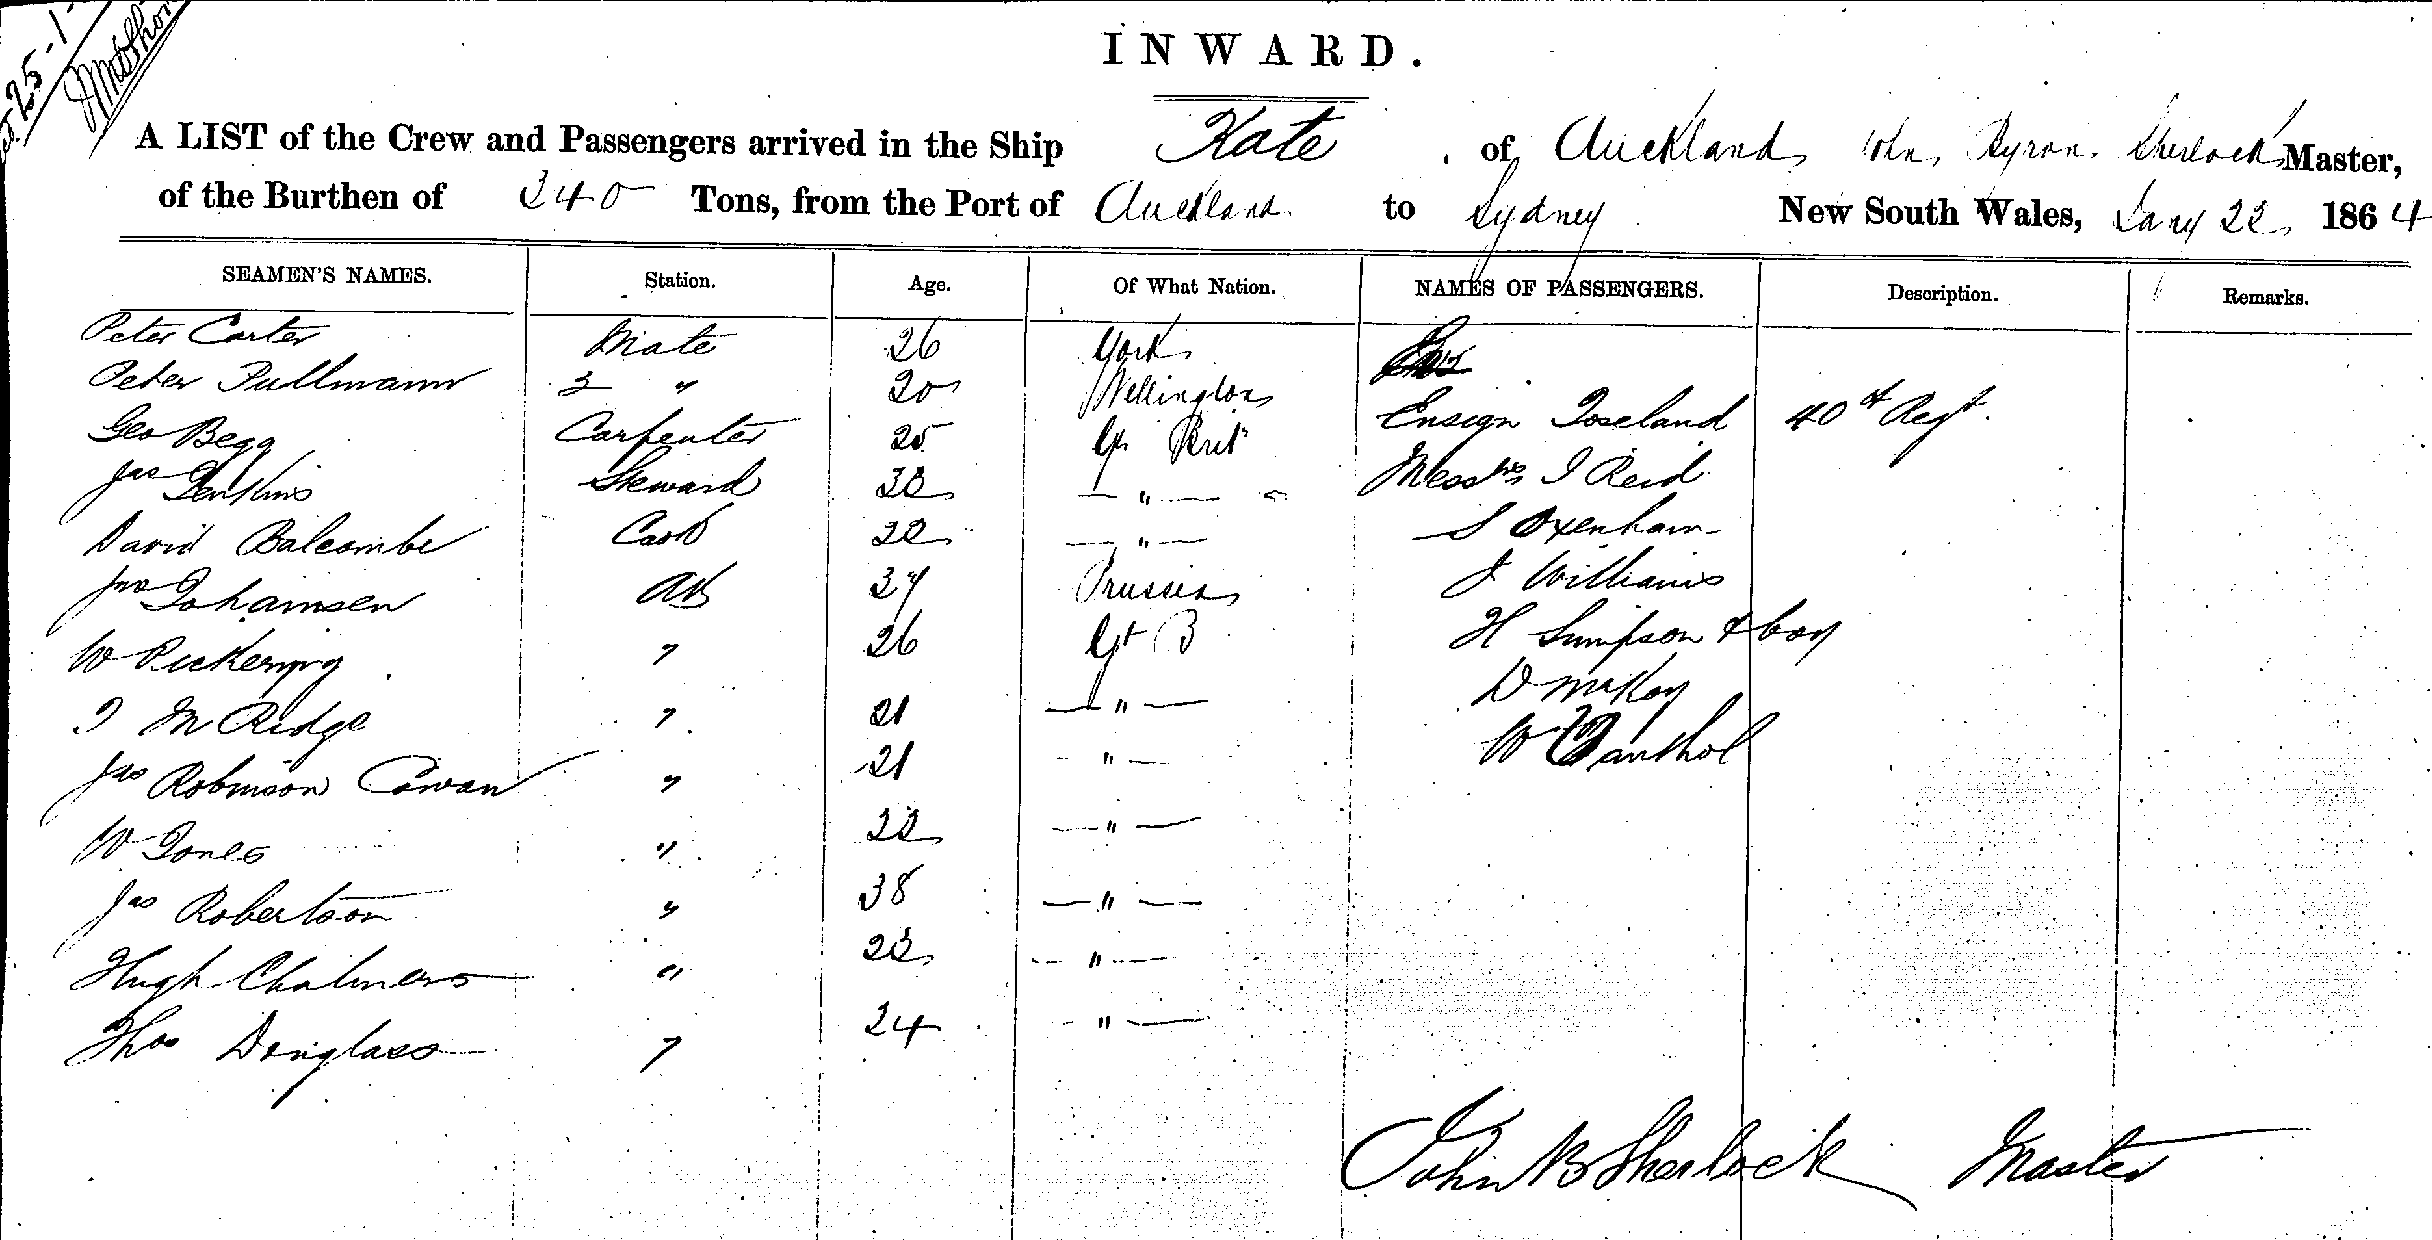 25-1
INWARD.
A LIST of the Crew and Passengers arrived in the Ship Kate of Auckland, John Byron Sherlock Master,
of the Burthen of 340 Tons, from the Port of Auckland to Sydney New South Wales, Jany 22 1864
SEAMEN'S NAMES. Station. Age. Of What Nation. NAMES OF PASSENGERS. Description. Remarks.
Peter Carter Mate 26 York
Peter Pullmann 2 " 20 Wellington
Geo Begg Carpenter 25 Gt Brit Ensign Toseland 40th Regt.
Jas Jenkins Steward — " — Messrs J Reid
David Balcombe Cook 22 — " — S Oxenham
Jno Johannsen AB Prussia J Williams
W Pickering " 26 Gt B H Simpson & boy
J M Ridge " 21 — " — D McKay
Jas Robinson Cowan " 21 " — W
W Jones " 22 — " —
Jas Robertson " 38 — " —
Hugh Chalmers " 23 — " —
Thos Douglass " 24 - " —
John B Sherlock Master